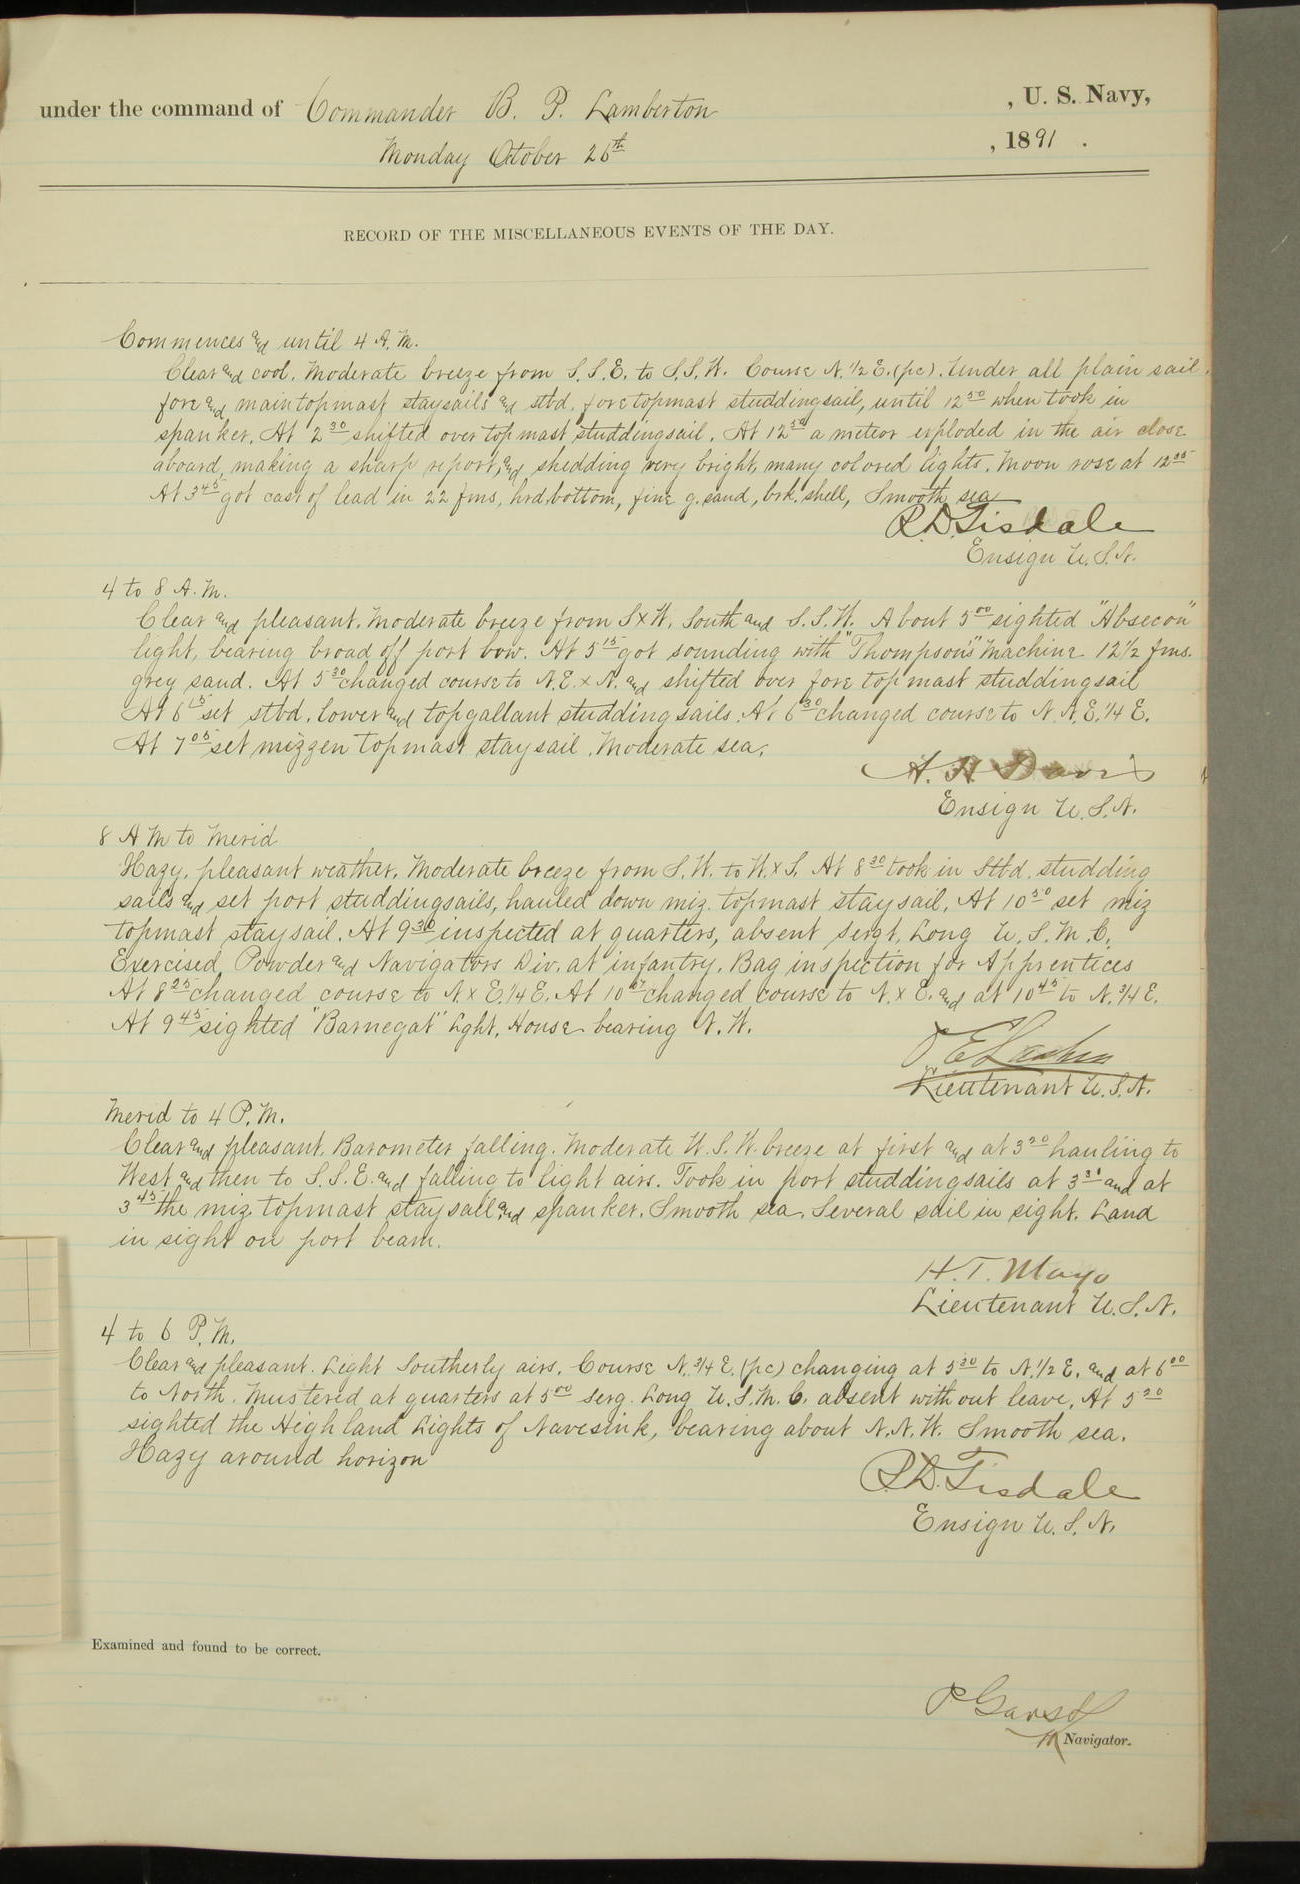 under the command of Commander B. P. Lamberton , U. S. Navy,
Monday October 26th , 1891 .
RECORD OF THE MISCELLANEOUS EVENTS OF THE DAY.
Commences and until 4 A.M.
Clear and cool. Moderate breeze from S.S.E. to S.S.W. Course N. 1/2 E. (pc). Under all plain sail,
fore and maintopmast staysails and stbd. foretopmast studdingsail, until 12 50 when took in
spanker. At 2 30 shifted over topmast studdingsail. At 12 50 a meteor exploded in the air close
aboard, making a sharp report, and shedding very bright, many colored lights. Moon rose at 12 05
At 3 45 got cast of lead in 22 fms, hrd. bottom, fine g. sand, brk. shell, Smooth sea
R.D. Tisdale
Ensign U.S.N.
4 to 8 A.M.
Clear and pleasant. Moderate breeze from SxW, South and S.S.W. About 5 00 sighted "Absecon"
light, bearing broad off port bow. At 5 15 got sounding with "Thompson's" Machine 12 1/2 fms.
grey sand. At 5 30 changed course to N.E. x N. and shifted over fore topmast studdingsail
At 6 15 set stbd. lower and topgallant studdingsails. At 6 30 changed course to N.N.E. 1/4 E.
At 7 05 set mizzen topmast staysail. Moderate sea.
A. H. Davis
Ensign U.S.N.
8 A M to Merid
Hazy, pleasant weather. Moderate breeze from S.W. to W.x S. At 8 30 took in Stbd. studding
sails and set port studdingsails, hauled down miz. topmast staysail. At 10 50 set miz
topmast staysail. At 9 30 inspected at quarters, absent Sergt. Long U.S.M.C.
Exercised Powder and Navigators Div. at infantry. Bag inspection for Apprentices
At 8 25 changed course to N x E. 1/4 E. At 10 changed course to N. x E. and at 10 45 to N. 3/4 E.
At 9 45 sighted "Barnegat" Lght. House bearing N.W.
Lieutenant U.S.N.
Merid to 4 P.M.
Clear and pleasant. Barometer falling. Moderate W.S.W. breeze at first and at 3 20 hauling to
West and then to S.S.E. and falling to light airs. Took in port studdingsails at 3 30 and at
3 45 the miz topmast staysail and spanker. Smooth sea. Several sail in sight. Land
in sight on port beam.
H. T. Mayo
Lieutenant U.S.N.
4 to 6 P.M.
Clear and pleasant. Light Southerly airs. Course N. 3/4 E. (pc) changing at 5 30 to N. 1/2 E. and at 6 00
to North. Mustered at quarters at 5 00 Serg. Long U.S.M.C. absent without leave. At 5 20
sighted the Highland Lights of Navesink, bearing about N.N.W. Smooth sea.
Hazy around horizon
R.D. Tisdale
Ensign U.S.N.
Examined and found to be correct.
P Garst
Navigator.